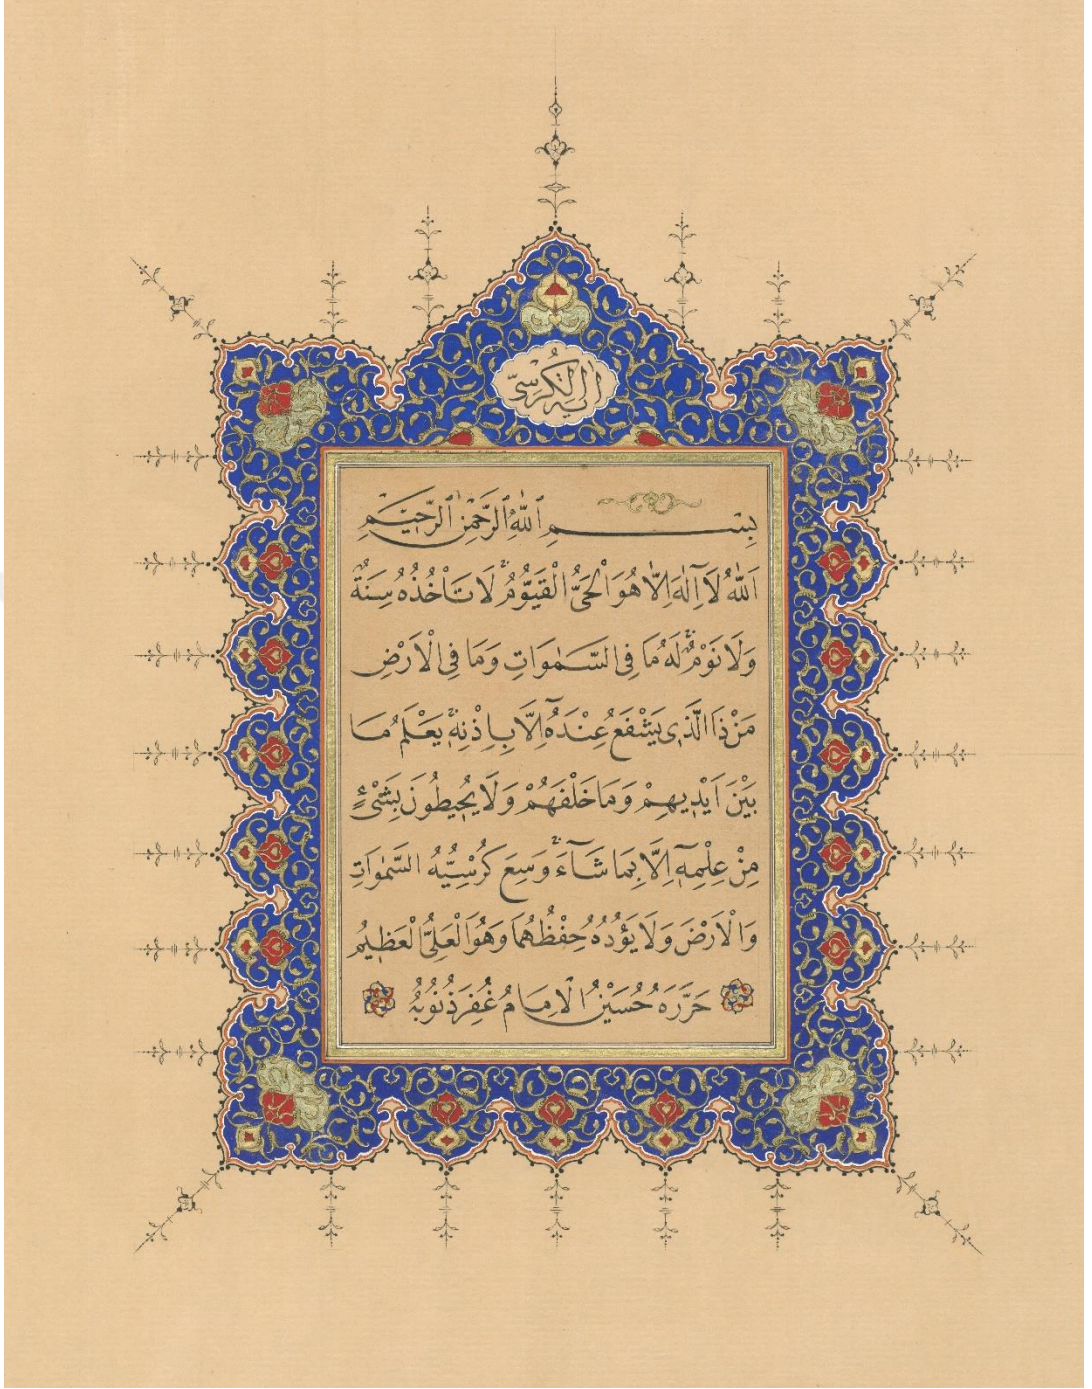 آية الكرسي
بِسْمِ ٱللّٰهِ ٱلرَّحْمٰنِ ٱلرَّحِيمِ
اَللّٰهُ لَٓا اِلٰهَ اِلَّا هُوَ اَلْحَىُّ الْقَيُّومُۚ لَا تَاْخُذُهُ سِنَةٌ
وَلَا نَوْمٌۜ لَهُ مَا فِى السَّمٰوَاتِ وَمَا فِى الْاَرْضِ
مَنْ ذَا الَّذِى يَشْفَعُ عِنْدَهُٓ اِلَّا بِاِذْنِهِۜ يَعْلَمُ مَا
بَيْنَ اَيْدِيهِمْ وَمَا خَلْفَهُمْ وَلَا يُحِيطُونَ بِشَىْءٍ
مِنْ عِلْمِهِٓ اِلَّا بِمَا شَٓاءَۚ وَسِعَ كُرْسِيُّهُ السَّمٰوَاتِ
وَالْاَرْضَ وَلَا يَؤُدُهُ حِفْظُهُمَا وَهُوَ الْعَلِىُّ الْعَظِيمُ
حَرَّرَهُ حُسَيْنُ الْاِمَامُ غُفِرَ ذُنُوبُهُ